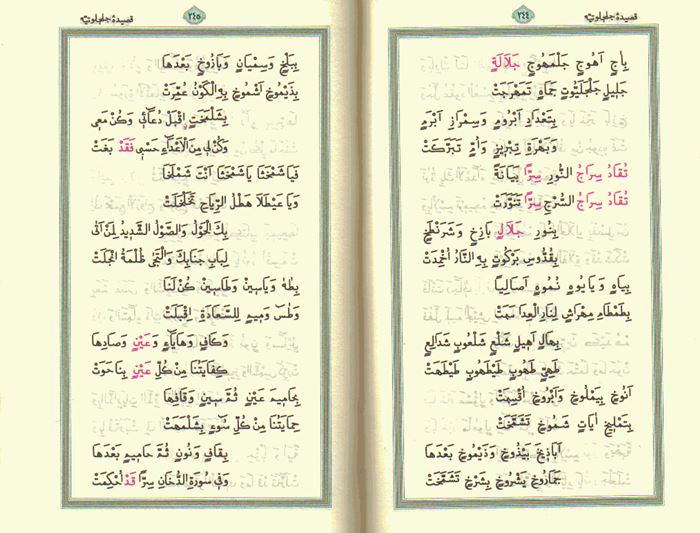 ٢٤٤ قصيدهٔ جلجلوتيه
بِآجٍ آهُوجٍ جَلْمَهُوجٍ جَلَالَةٍ
جَلِيلٍ جَلْجَلَيُّوتٍ جَمَاهٍ تَمَهْرَجَتْ
بِتَعْدَادِ اَبْرُومٍ وَسِمْرَازِ اَبْرَمٍ
وَبَهْرَةِ تِبْرِيزٍ وَاُمٍّ تَبَرَّكَتْ
تُقَادُ سِرَاجُ النُّورِ سِرًّا بَيَانَةً
تُقَادُ سِرَاجُ السُّرْجِ سِرًّا تَنَوَّرَتْ
بِنُورِ جَلَالٍ بَازِخٍ وَشَرَنْطَخٍ
بِقُدُّوسِ بَرْكُوتٍ بِهِ النَّارُ اُخْمِدَتْ
بِيَاهٍ وَيَايُوهٍ نُمُوهٍ اَصَالِيًا
بِطَمْطَامٍ مِهْرَاشٍ لِنَارِ الْعِدَا سَمَتْ
بِهَالٍ اَهِيلٍ شَلْعٍ شَلْعُوبٍ شَالِعٍ
طَهِيٍّ طَهُوبٍ طَيْطَهُوبٍ طَيَطَهَتْ
اَنُوخٍ بِيَمْلُوخٍ وَاَبْرُوخٍ اُقْسِمَتْ
بِتَمْلِيخِ اٰيَاتٍ شَمُوخٍ تَشَمَّخَتْ
اَبَاذِيخَ بَيْذُوخٍ وَذَيْمُوخٍ بَعْدَهَا
خَمَارُوخٍ يَشْرُوخٍ بِشَرْخٍ تَشَمَّخَتْ
٢٤٥ قصيدهٔ جلجلوتيه
بِبَلْخٍ وَسِمْيَانٍ وَبَازُوخٍ بَعْدَهَا
بِذَيْمُوخٍ اَشْمُوخٍ بِهِ الْكَوْنُ عُمِّرَتْ
بِشَلْمَخَتٍ اِقْبَلْ دُعَائِي وَكُنْ مَعِي
وَكُنْ لِي مِنَ الْاَعْدَاءِ حَسْبِي فَقَدْ بَغَتْ
فَيَا شَمْخَثَا يَا شَمْخَثَا اَنْتَ شَمْلَخَا
وَيَا عَيْطَلَا هَطْلُ الرِّيَاحِ تَخَلْخَلَتْ
بِكَ الْحَوْلُ وَالصَّوْلُ الشَّدِيدُ لِمَنْ اَتٰى
لِبَابِ جَنَابِكَ وَالْتَجٰى ظُلْمَةُ انْجَلَتْ
بِطٰهٰ وَيَاسِينَ وَطَاسِينَ كُنْ لَنَا
وَطٰسٓ وَمِيمٍ لِلسَّعَادَةِ اَقْبَلَتْ
وَكَافٍ وَهَايَاءٍ وَعَيْنٍ وَصَادِهَا
كِفَايَتُنَا مِنْ كُلِّ عَيْنٍ بِنَا حَوَتْ
بِحَامِيمَ عَيْنٍ ثُمَّ سِينٍ وَقَافِهَا
حِمَايَتُنَا مِنْ كُلِّ سُوءٍ بِشَلْمَهَتْ
بِقَافٍ وَنُونٍ ثُمَّ حَامِيمٍ بَعْدَهَا
وَفِي سُورَةِ الدُّخَانِ سِرًّا قَدْ اُحْكِمَتْ